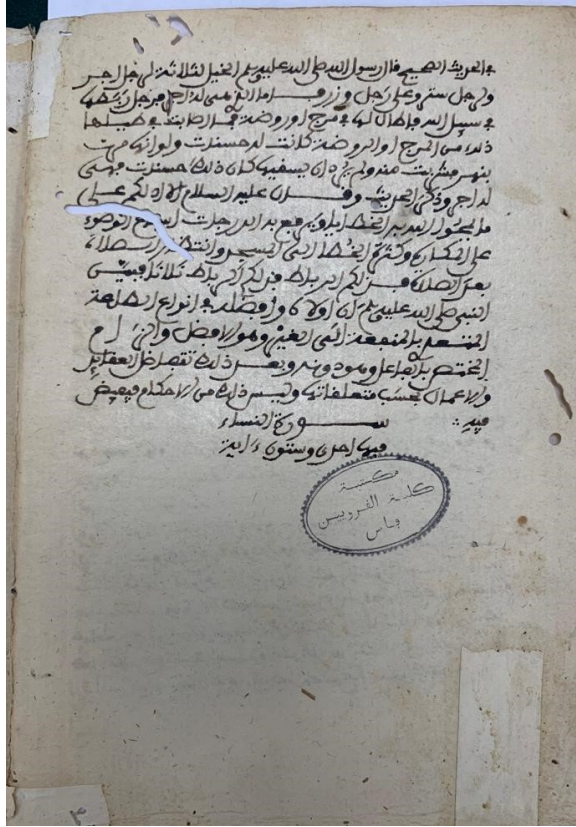 في الحديث الصحيح قال رسول الله صلى الله عليه وسلم الخيل لثلاثة لرجل اجر
ولرجل ستر وعلى رجل وزر فاما الذي هي له اجر فرجل ربطها
في سبيل الله فاطال لها في مرج او روضة فما اصابت في طيلها
ذلك من المرج او الروضة كانت له حسنات ولو انها مرت
بنهر فشربت منه ولم يرد ان يسقيها كان ذلك حسنات فهي
له اجر وذكر الحديث وقال عليه السلام الا ادلكم على
ما يمحو الله به الخطايا ويرفع به الدرجات اسباغ الوضوء
على المكاره وكثرة الخطا الى المسجد وانتظار الصلاة
بعد الصلاة فذلكم الرباط فذلكم الرباط ثلاثا فبين
النبي صلى الله عليه وسلم ان اولاه وافضله في انواع الطاعة
المتعدي بالمنفعة الى الغير وهو الافضل
المختص بالفاعل وهو دونه وبعد ذلك تفاضل العقائد
والاعمال بحسب متعلقاتها وليس ذلك من الاحكام فيفيض
فيه
سورة النساء
فيها احدى وستون ءاية
مكتبة
كلية القرويين
بفاس